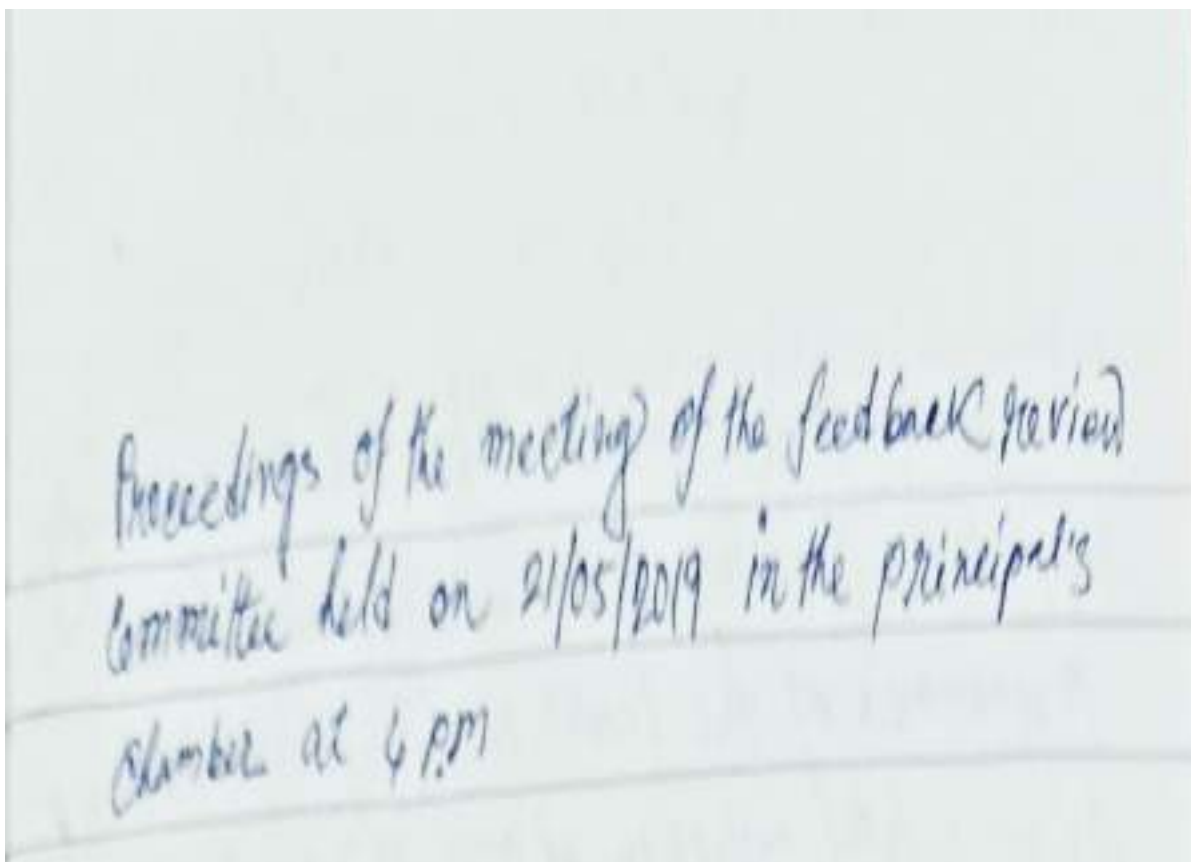 Proceedings of the meeting of the feedback review
Committee held on 21/05/2019 in the principal's
Chamber at 4 P.M